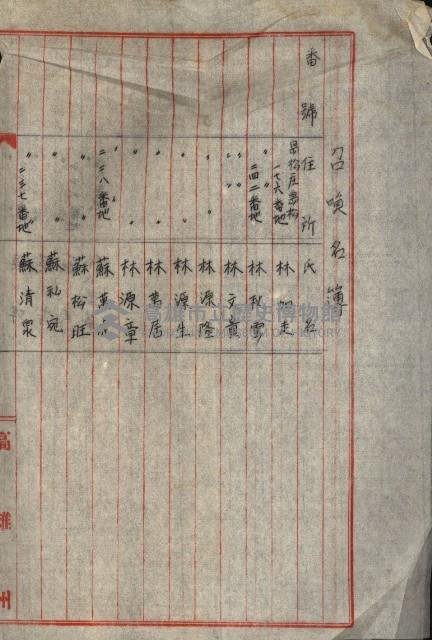 召喚名簿
番號 住所 氏名
一七六番地 林 走
〃 二四二番地 林秋雪
〃 〃 林文
〃 〃 林源隆
〃 〃 林源生
〃 〃 林萬居
〃 〃 林源章
〃 二二八番地 蘇萬
〃 〃 蘇松旺
〃 〃 蘇私宛
〃 二三七番地 蘇清泉
高雄
高雄市立歷史博物館
KAOHSIUNG MUSEUM OF HISTORY